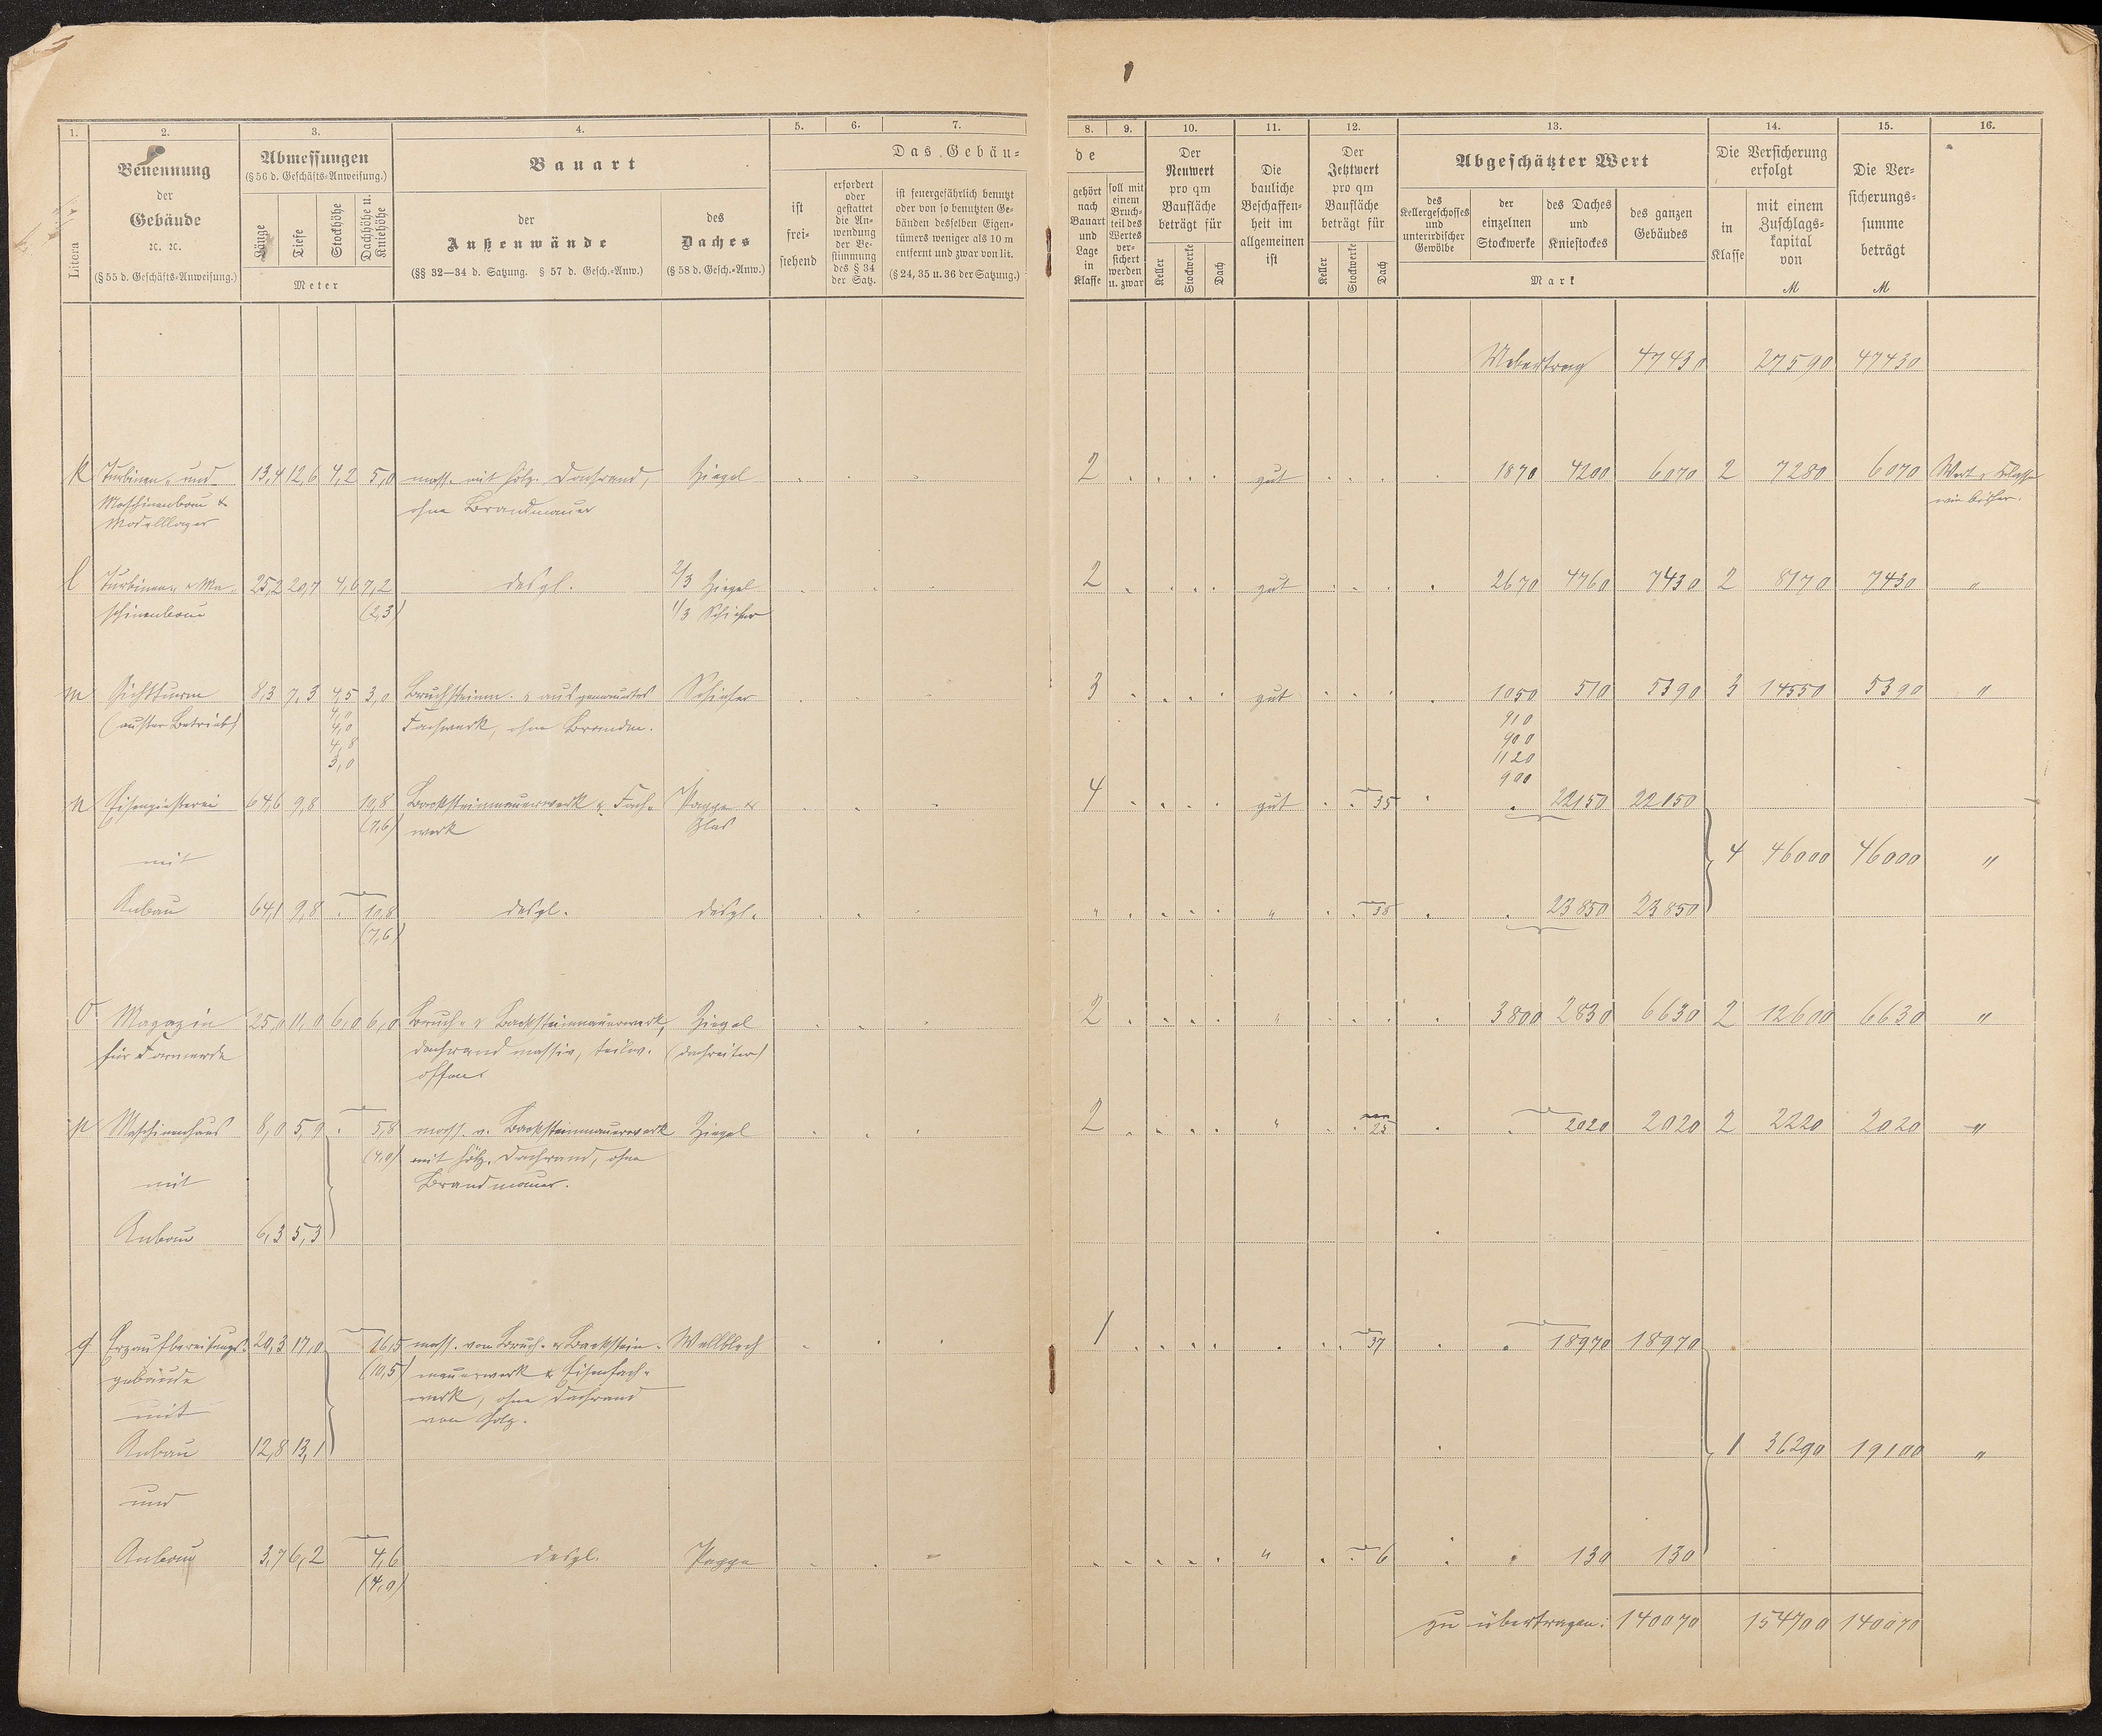 1. 2. 3. 4. 5. 6. 7. 8. 9. 10. 11. 12. 13. 14. 15. 16.
Litera
Benennung
der
Gebäude
ꝛc. ꝛc.
(§ 55 d. Geschäfts-Anweisung.)
Abmessungen
(§ 56 d. Geschäfts-Anweisung.)
Länge
Tiefe
Stockhöhe
Dachhöhe u. Kniehöhe
Meter
Bauart
der
Außenwände
(§§ 32—34 d. Satzung. § 57 d. Gesch.-Anw.)
des
Daches
(§ 58 d. Gesch.-Anw.)
Das Gebäu-
ist
frei-
stehend
erfordert
oder
gestattet
die An-
wendung
der Be-
stimmung
des § 34
der Satz.
ist feuergefährlich benutzt
oder von so benutzten Ge-
bäuden desselben Eigen-
tümers weniger als 10 m
entfernt und zwar von lit.
(§ 24, 35 u. 36 der Satzung.)
de
gehört
nach
Bauart
und
Lage
in
Klasse
soll mit
einem
Bruch-
teil des
Wertes
ver-
sichert
werden
u. zwar
Der
Neuwert
pro qm
Baufläche
beträgt für
Keller
Stockwerke
Dach
Die
bauliche
Beschaffen-
heit im
allgemeinen
ist
Der
Jetztwert
pro qm
Baufläche
beträgt für
Keller
Stockwerke
Dach
Abgeschätzter Wert
des
Kellergeschosses
und
unterirdischer
Gewölbe
der
einzelnen
Stockwerke
des Daches
und
Kniestockes
des ganzen
Gebäudes
Mark
Die Versicherung
erfolgt
in
Klasse
mit einem
Zuschlags-
kapital
von
M
Die Ver-
sicherungs-
summe
beträgt
M
Uebertrag 47430 27590 47430
k Turbinen- und 13,4 12,6 4,2 5,0 mass. mit holz. Dachrand, Ziegel 2 gut 1870 4200 6070 2 7280 6070 Wert u. Klasse
Maschinenbau & ohne Brandmauer wie bisher.
Modelllager
l Turbinen- & Ma- 25,2 20,7 4,6 7,2 desgl. 2/3 Ziegel 2 gut 2670 4760 7430 2 8170 7430 "
schinenbau (2,3) 1/3 Schiefer
m Gichtturm 8,3 7,3 4,5 3,0 Bruchstein- & ausgemauertes Schiefer 3 gut 1050 510 5390 3 14550 5390 "
(ausser Betrieb) 4,0 Fachwerk, ohne Brandm. 910
4,0 900
4,8 1120
3,0 900
n Eisengiesserei 64,6 9,8 10,8 Backsteinmauerwerk & Fach- Pappe & 4 gut 35 22150 22150
(7,6) werk Glas
mit 4 46000 46000 "
Anbau 64,1 9,8 10,8 desgl. desgl. " " 38 23850 23850
(7,6)
o Magazin 25,0 11,0 6,0 6,0 Bruch- & Backsteinmauerwerk, Ziegel 2 " 3800 2830 6630 2 12600 6630 "
für Formerde Dachrand massiv, teilw. (Dachreiter)
offen
p Maschinenhaus 8,0 5,9 5,8 mass. v. Backsteinmauerwerk Ziegel 2 " 25 2020 2020 2 2220 2020 "
(4,0) mit holz. Dachrand, ohne
mit Brandmauer.
Anbau 6,3 5,3
q Erzaufbereitungs- 20,3 17,0 16,5 mass. von Bruch- & Backstein- Wellblech 1 37 18970 18970
gebäude (10,5) mauerwerk & Eisenfach-
mit werk, ohne Dachrand
von Holz.
Anbau 12,8 13,1 1 36290 19100 "
und
Anbau 3,7 6,2 4,6 desgl. Pappe " 6 130 130
(4,0)
zu übertragen: 140070 154700 140070